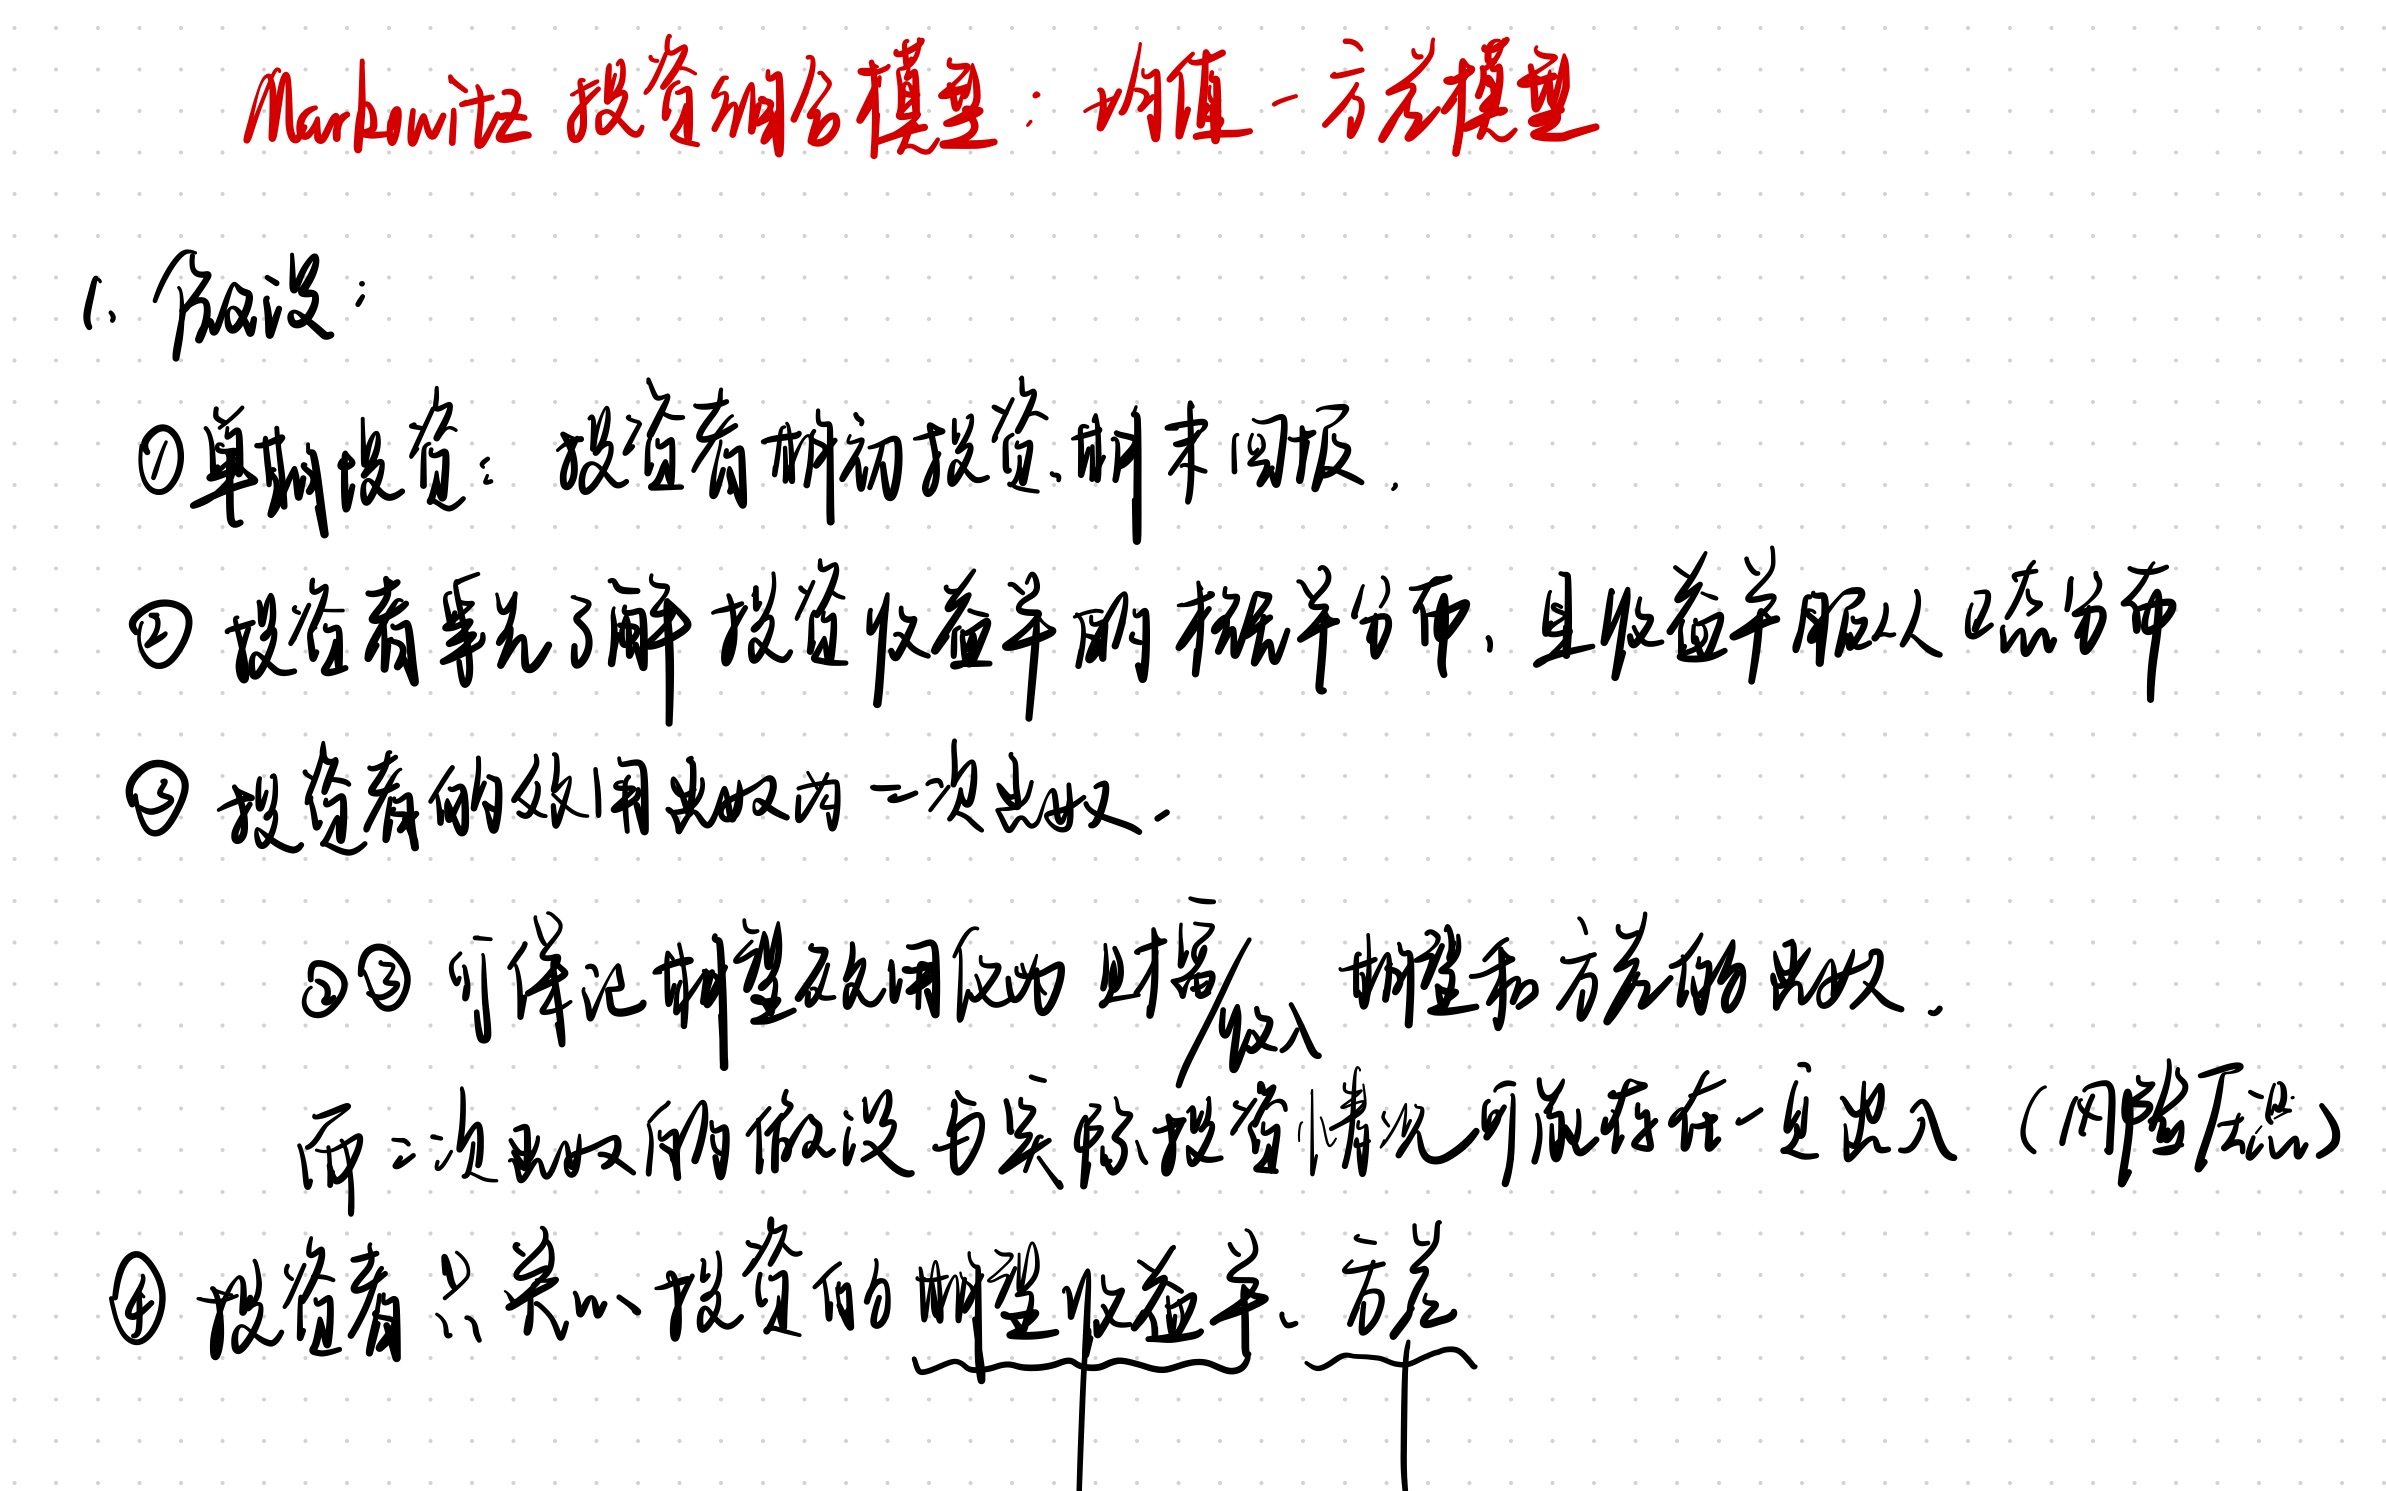 Markowitz 投资组合模型：均值一方差模型
1. 假设：
① 单期投资：投资者期初投资、期末回报.
② 投资者事先了解投资收益率的概率分布、且收益率服从正态分布
③ 投资者的效用函数为二次函数.
②③可保证期望效用仅为财富/收入 期望和方差的函数.
而二次函数的假设与实际投资情况可能存在一定出入（
④ 投资者只关心投资的期望收益率、方差